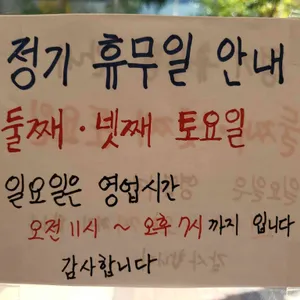 정기 휴무일 안내
둘째·넷째 토요일
일요일은 영업시간
오전 11시 ~ 오후 7시까지 입니다
감사합니다